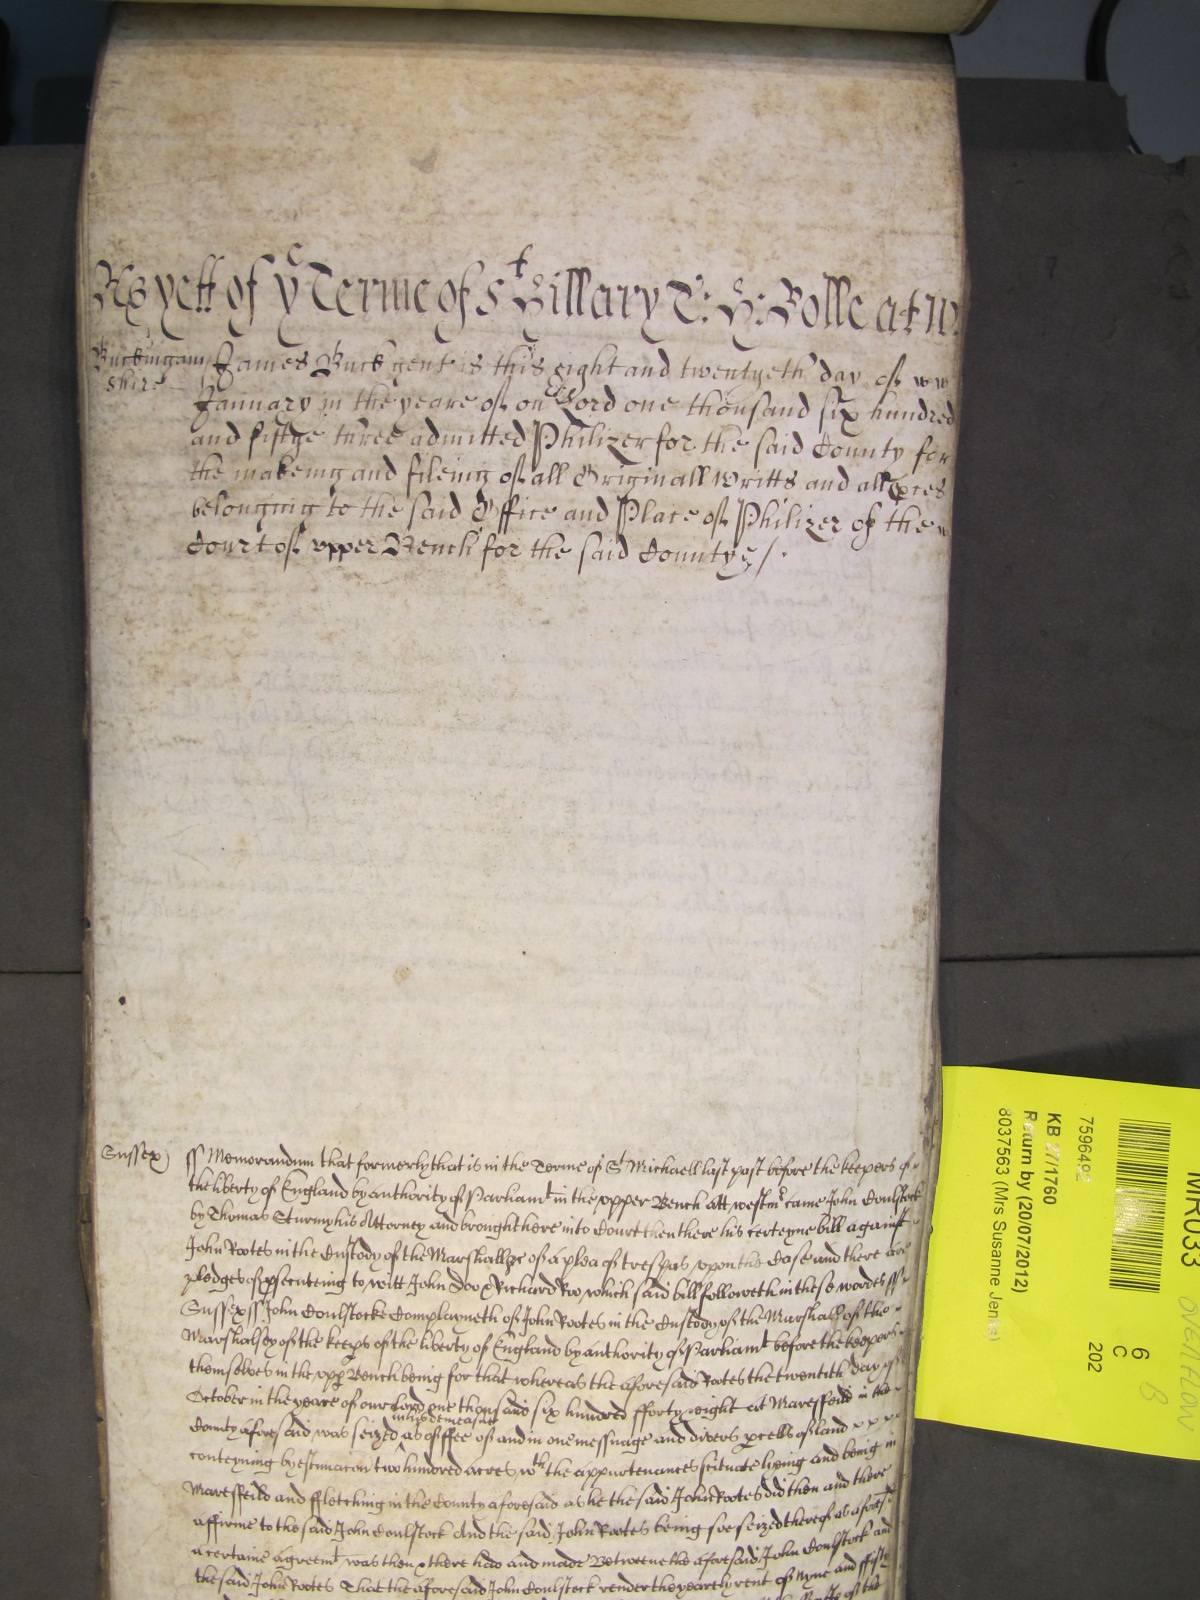 As yett of ye Terme of St Hillary T: H: Rolle at W
Buckingam
shire
James Buck gent is this eight and twentyeth day of
January in the yeare of our Lord one thousand six hundred
and fiftye three admitted Philizer for the said County for
the makeing and fileing of all Originall Writts and all
belonging to the said Office and Place of Philizer of the
Court of upper Bench for the said Countye /.
Sussex
ss Memorandum that formerly that is in the Terme of St Michaell last past before the keepers of
the liberty of England by authority of Parliamt in the upper Bench att westmr came John Coulstock
by Thomas Sturmy his Attorney and brought here into Court then there his certeyne bill against
John Rootes in the Custody of the Marshall &c of a plea of trespas upon the Case and there are
pledges of psecuteing to witt John Doo & Richard Roo, which said bill followeth in these wordes ss
Sussex ss John Coulstocke Complayneth of John Rootes in the Custody of the Marshall of the
Marshalsey of the keeps of the liberty of England by authority of Parliamt before the keepers
themselves in the upp Bench being for that whereas the aforesaid Rootes the twentith day of
October in the yeare of our Lord one thousand six hundred fforty eight at Maresfeild in the
in his demeasne
County aforesaid was seized as of ffee of and in one messuage and divers pcells of land
conteyning by estimacon two hundred acres wth the appurtenances scituate lyeing and being in
Maresfeild and ffletching in the County aforesaid as he the said John Rootes did then and there
affirme to the said John Coulstock And the said John Rootes being soe seized thereof as aforesd
a certaine agreemt was then & there had and made Betweene the aforesaid John Coulstock and
the said John Rootes That the aforesaid John Coulstock render the yearely rent of Nyne and ffifty
MR033
overflow
8
6
C
202
7596492
KB 27/1760
Return by (20/07/2012)
8037563 (Mrs Susanne Jen